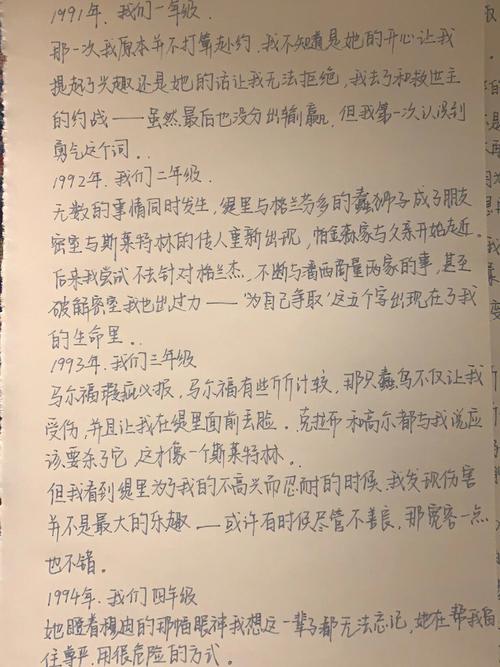 1991年.我们一年级.
那一次我原本并不打算赴约.我不知道是她的开心让我
提起了兴趣还是她的话让我无法拒绝,我去了和救世主
的约战——虽然最后也没分出输赢.但我第一次认识到
勇气这个词..
1992年.我们二年级.
无数的事情同时发生,缇里与格兰芬多的蠢狮子成了朋友
密室与斯莱特林的传人重新出现,帕金森家与父亲开始走近.
后来我尝试不去针对格兰杰,不断与潘西商量两家的事,甚至
破解密室我也出过力——'为自己争取'这五个字出现在了我
的生命里..
1993年.我们三年级
马尔福瑕疵必报,马尔福有些斤斤计较,那只蠢鸟不仅让我
受伤,并且让我在缇里面前丢脸.克拉布和高尔都与我说应
该要杀了它 这才像一个斯莱特林..
但我看到缇里为了我的不高兴而忍耐的时候.我发现伤害
并不是最大的乐趣——或许有时候尽管不善良,那宽容一点
也不错。
1994年.我们四年级
她瞪着穆迪的那幅眼神我想这一辈子都无法忘记,她在帮我留
住尊严.用很危险的方式。